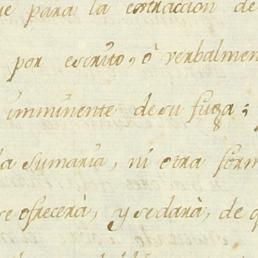 e para la extraccion de
por escrito, ò verbalmen
imminente de su fuga;
la sumaria, ni otra form
se ofrecerà, y se darà, de q